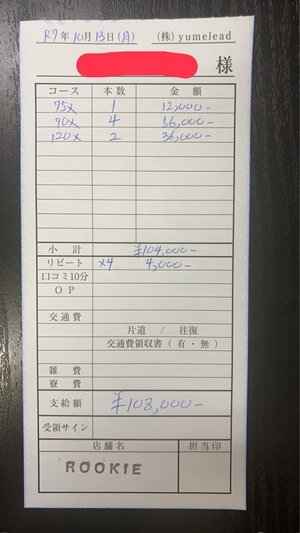 R7年10月13日(月) (株)yumelead
様
コース 本数 金額
75分 1 12,000-
90分 4 56,000-
120分 2 36,000-
小計 ¥104,000-
リピート ×4 4,000-
口コミ10分
OP
交通費
片道 / 往復
交通費領収書(有・無)
雑費
寮費
支給額 ¥108,000-
受領サイン
店舗名 担当印
ROOKIE